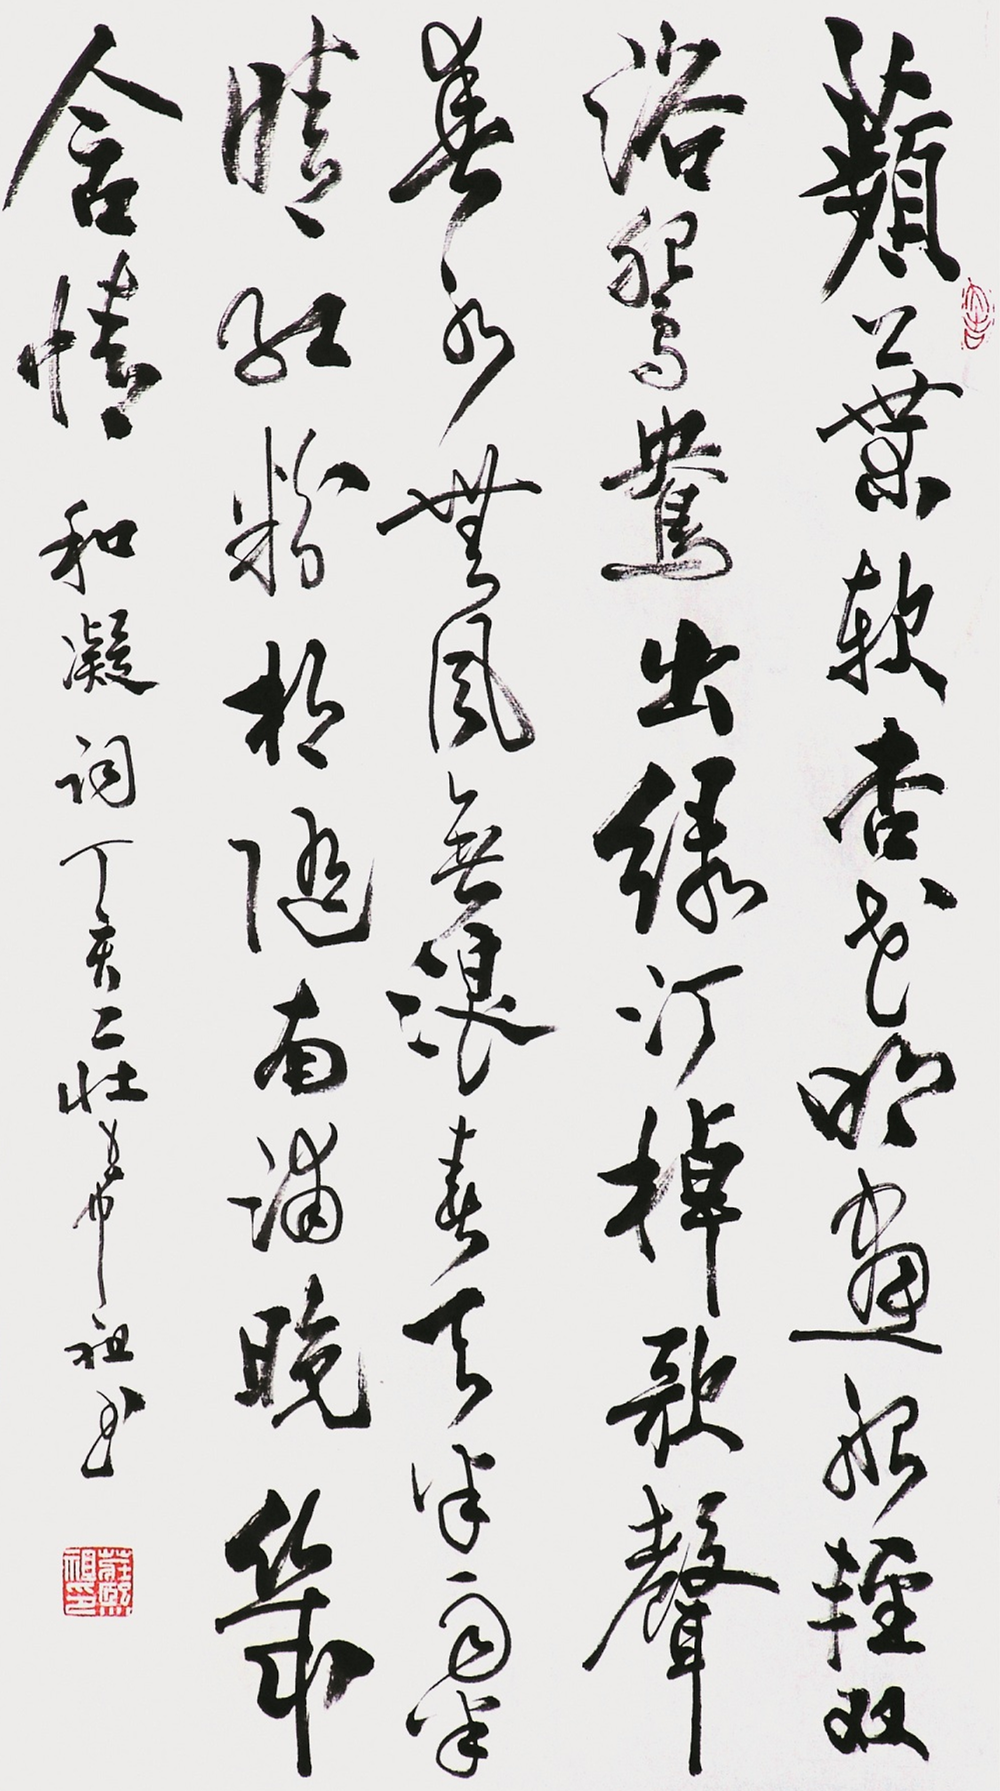 蘋葉軟杏花明畫船輕双
浴鴛鴦出緑汀棹歌聲
春水無風無浪春天半雨半
晴紅粉相隨南浦晚幾
含情 和凝詞 丁亥 希祖书